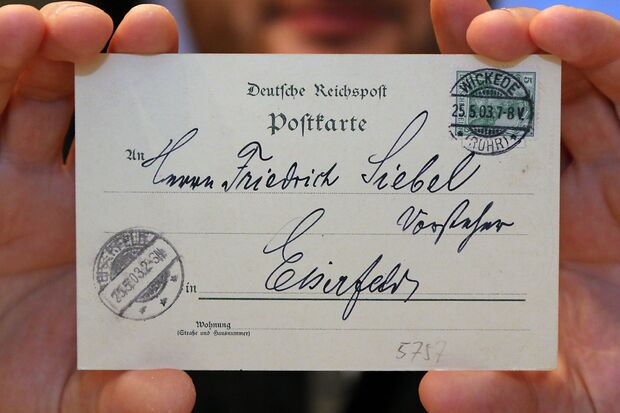 Deutsche Reichspost
Postkarte
5
WICKEDE
25.5.03.7-8V.
* (RUHR) *
An Herrn Friedrich Siebel
Vorsteher
in Eiserfeld
EISERFELD
25.5.03.2-3N.
* * *
Wohnung
(Straße und Hausnummer)
5757